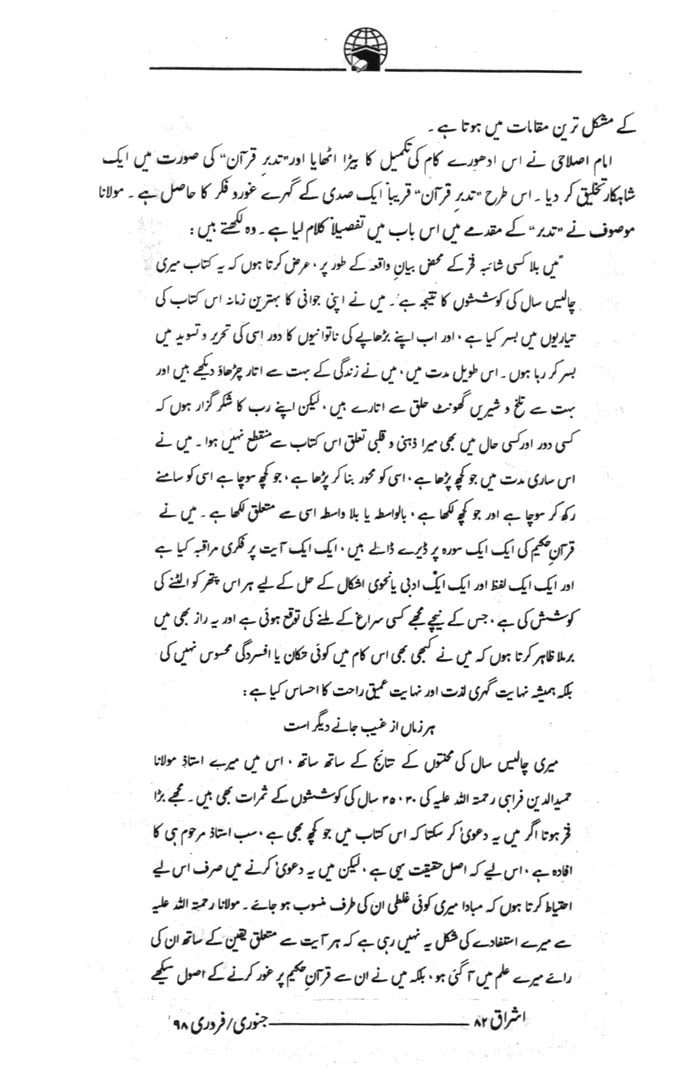 کے مشکل ترین مقامات میں ہوتا ہے ۔
امام اصلاحی نے اس ادھورے کام کی تکمیل کا بیڑا اٹھایا اور ”تدبرِ قرآن“ کی صورت میں ایک
شاہکار تخلیق کر دیا ۔ اس طرح ”تدبرِ قرآن“ قریباً ایک صدی کے گہرے غور و فکر کا حاصل ہے ۔ مولانا
موصوف نے ”تدبر“ کے مقدمے میں اس باب میں تفصیلاً کلام لیا ہے ۔ وہ لکھتے ہیں :
”میں بلا کسی شائبہ فخر کے محض بیانِ واقعہ کے طور پر ، عرض کرتا ہوں کہ یہ کتاب میری
چالیس سال کی کوششوں کا نتیجہ ہے ۔ میں نے اپنی جوانی کا بہترین زمانہ اس کتاب کی
تیاریوں میں بسر کیا ہے ، اور اب اپنے بڑھاپے کی ناتوانیوں کا دور اسی کی تحریر و تسوید میں
بسر کر رہا ہوں ۔ اس طویل مدت میں ، میں نے زندگی کے بہت سے اتار چڑھاؤ دیکھے ہیں اور
بہت سے تلخ و شیریں گھونٹ حلق سے اتارے ہیں ، لیکن اپنے رب کا شکر گزار ہوں کہ
کسی دور اور کسی حال میں بھی میرا ذہنی و قلبی تعلق اس کتاب سے منقطع نہیں ہوا ۔ میں نے
اس ساری مدت میں جو کچھ پڑھا ہے ، اسی کو محور بنا کر پڑھا ہے ، جو کچھ سوچا ہے اسی کو سامنے
رکھ کر سوچا ہے اور جو کچھ لکھا ہے ، بالواسطہ یا بلا واسطہ اسی سے متعلق لکھا ہے ۔ میں نے
قرآنِ حکیم کی ایک ایک سورہ پر ڈیرے ڈالے ہیں ، ایک ایک آیت پر فکری مراقبہ کیا ہے
اور ایک ایک لفظ اور ایک ایک ادبی یا نحوی اشکال کے حل کے لیے ہر اس پتھر کو الٹنے کی
کوشش کی ہے ، جس کے نیچے مجھے کسی سراغ کے ملنے کی توقع ہوئی ہے اور یہ راز بھی میں
برملا ظاہر کرتا ہوں کہ میں نے کبھی بھی اس کام میں کوئی تھکان یا افسردگی محسوس نہیں کی
بلکہ ہمیشہ نہایت گہری لذت اور نہایت عمیق راحت کا احساس کیا ہے :
ہر زماں از غیب جانے دیگر است
میری چالیس سال کی محنتوں کے نتائج کے ساتھ ساتھ ، اس میں میرے استاذ مولانا
حمیدالدین فراہی رحمتہ اللہ علیہ کی ۳۰ ، ۳۵ سال کی کوششوں کے ثمرات بھی ہیں ۔ مجھے بڑا
فخر ہوتا اگر میں یہ دعویٰ کر سکتا کہ اس کتاب میں جو کچھ بھی ہے ، سب استاذ مرحوم ہی کا
افادہ ہے ، اس لیے کہ اصل حقیقت یہی ہے ، لیکن میں یہ دعویٰ کرنے میں صرف اس لیے
احتیاط کرتا ہوں کہ مبادا میری کوئی غلطی ان کی طرف منسوب ہو جائے ۔ مولانا رحمتہ اللہ علیہ
سے میرے استفادے کی شکل یہ نہیں رہی ہے کہ ہر آیت سے متعلق یقین کے ساتھ ان کی
رائے میرے علم میں آ گئی ہو ، بلکہ میں نے ان سے قرآنِ حکیم پر غور کرنے کے اصول سیکھے
اشراق ۸۲ ــــــــ جنوری / فروری ۹۸ء